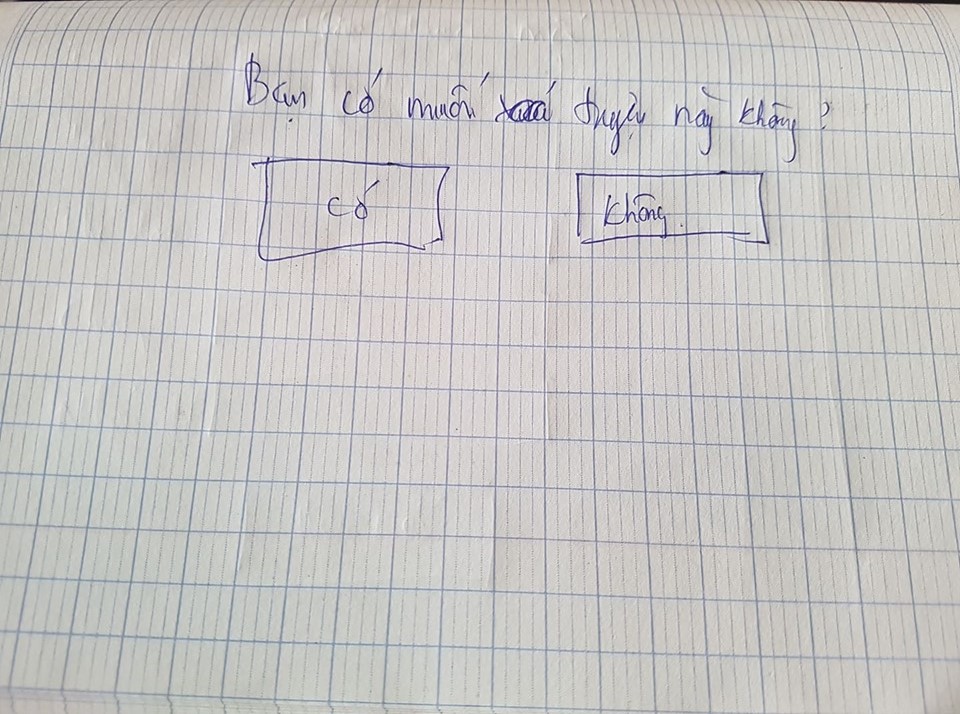 Bạn có muốn xoá truyện này không?
có
không.